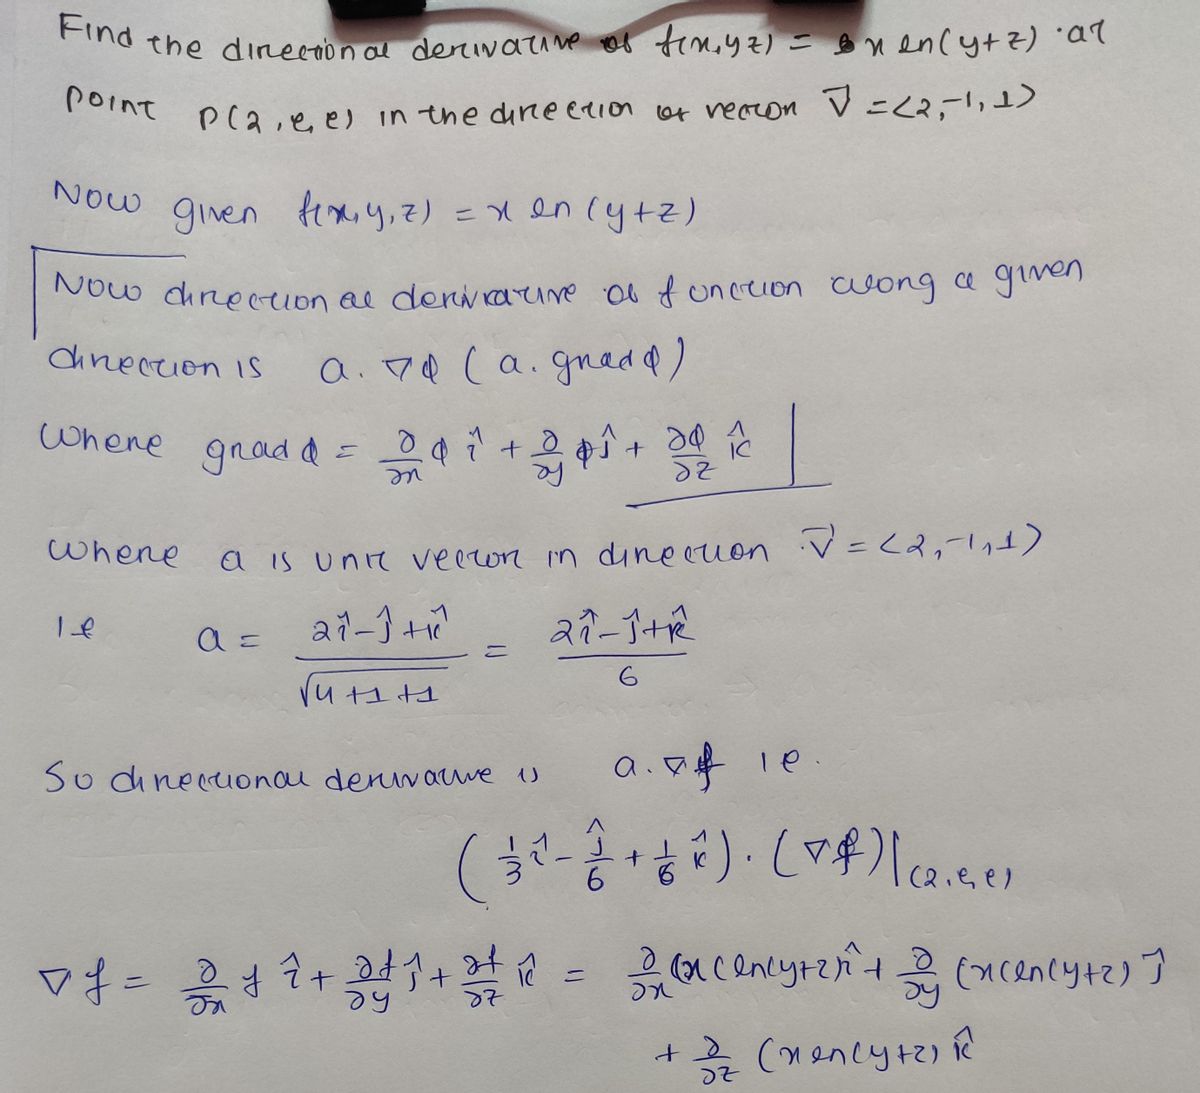 Find the directional derivative of f(x,y z) = x ln(y+z) . at
point P(2, e, e) in the direction of vector v⃗ = <2,-1, 1>
Now given f(x, y, z) = x ln (y+z)
Now directional derivative of function along a given
direction is a. ∇ϕ ( a. grad ϕ )
where grad ϕ = ∂/∂x ϕ î + ∂/∂y ϕ ĵ + ∂ϕ/∂z k̂
where a is unit vector in direction v⃗ = <2,-1,1>
ie a = (2î - ĵ + k̂)/√(4+1+1) = (2î - ĵ + k̂)/6
So directional derivative is a. ∇f ie.
( 1/3 î - ĵ/6 + 1/6 k̂ ) . (∇f)|(2,e,e)
∇f = ∂/∂x f î + ∂f/∂y ĵ + ∂f/∂z k̂ = ∂/∂x (x(ln(y+z) î + ∂/∂y (x(ln(y+z) ĵ
+ ∂/∂z (x ln(y+z) k̂